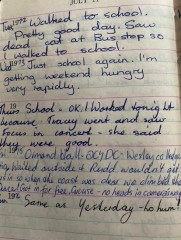 Tues 1972 Walked to school.
Pretty good day. Saw
dead cat at Bus stop so
I walked to school.
1973 Just school again. I'm
getting weekend hungry
very rapidly.
School - OK. I worked tonight
because Tracy went and saw
Focus in concert - she said
they were good.
Ormond Hall - GC/DC -
walked outside & wouldn't get
in so when the coast was clear we climbed the
in for free. Grouse - no heads in
Same as Yesterday - ho hum!